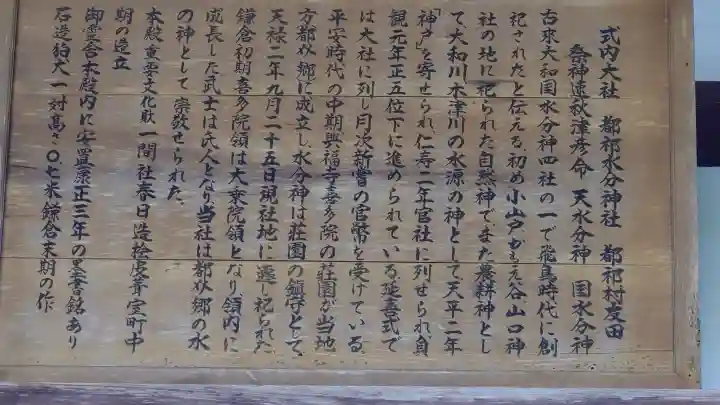 式内大社 都祁水分神社 都祁村友田
祭神速秋津彦命 天水分神 国水分神
古来大和国水分神四社の一で飛鳥時代に創
祀されたと伝える、初め小山戸かもえ谷山口神
社の地に祀られた自然神で、また農耕神とし
て大和川木津川の水源の神として天平二年
「神戸」を寄せられ仁寿二年官社に列せられ貞
観元年正五位下に進められている。延喜式で
は大社に列し月次新嘗の官幣を受けている。
平安時代の中期興福寺喜多院の荘園が当地
方都祁郷に成立し、水分神は荘園の鎮守として、
天禄二年九月二十五日現社地に遷し祀られた
鎌倉初期喜多院領は大乗院領となり、領内に
成長した武士は氏人となり当社は都祁郷の水
の神として崇敬せられた。
本殿重要文化財一間社春日造桧皮葺室町中
期の造立
御霊舎本殿内に安置康正三年の墨書銘あり
石造狛犬一対高さ〇.七米鎌倉末期の作